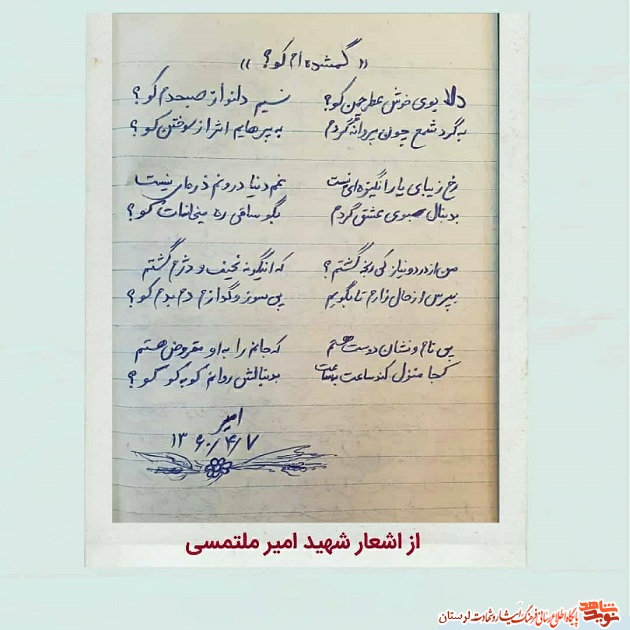 « گمشده ام کو؟ »
دلا بوی خوش عطر چمن کو؟ نسیم دلنواز صبحدم کو؟
به گرد شمع چون پروانه گردم به پرهایم اثر از سوختن کو؟
رخ زیبای یار انگیزه ای نیست غم دنیا درونم ذره ای نیست
بدنبال سبوی عشق گردم بگو ساقی ره میخانات کو؟
من از درد و نیاز کی رنجه گشتم؟ که اینگونه نحیف و دژم گشتم
بپرس از حال زارم تا بگویم پی سوز و گدازم دم بدم کو؟
پی نام و نشان دوست هستم که جانم را به او مقروض هستم
کجا منزل کند ساعت بساعت بدنبالش روانم کو به کو کو؟
امیر
۱۳۶۰/۴/۷
از اشعار شهید امیر ملتمسی
نوید شاهد
پایگاه اطلاع رسانی فرهنگ ایثار و شهادت لرستان